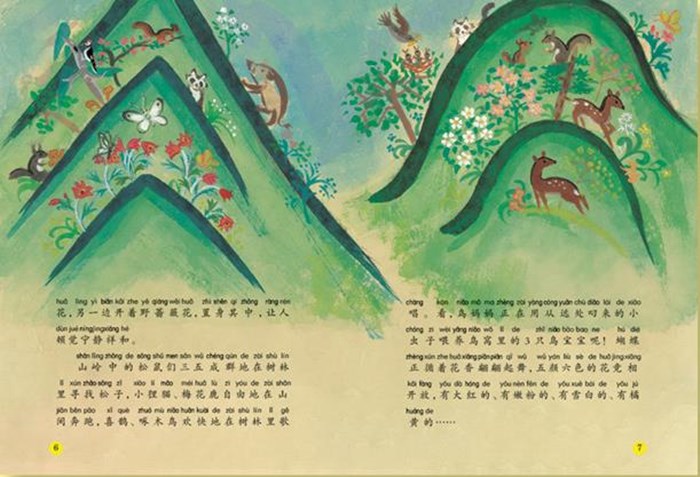 huā lìng yì biān kāi zhe yě qiáng wēi huā zhì shēn qí zhōng ràng rén
花，另一边开着野蔷薇花，置身其中，让人
dùn jué níng jìng xiáng hé
顿觉宁静祥和。
shān lǐng zhōng de sōng shǔ men sān wǔ chéng qún de zài shù lín
山岭中的松鼠们三五成群地在树林
lǐ xún zhǎo sōng zǐ xiǎo lí māo méi huā lù zì yóu de zài shān
里寻找松子，小狸猫、梅花鹿自由地在山
jiān bēn pǎo xǐ què zhuó mù niǎo huān kuài de zài shù lín lǐ gē
间奔跑，喜鹊、啄木鸟欢快地在树林里歌
6
chàng kàn niǎo mā ma zhèng zài yòng cóng yuǎn chù diāo lái de xiǎo
唱。看，鸟妈妈正在用从远处叼来的小
chóng zi wèi yǎng niǎo wō lǐ de zhī niǎo bǎo bao ne hú dié
虫子喂养鸟窝里的3只鸟宝宝呢！蝴蝶
zhèng xún zhe huā xiāng piān piān qǐ wǔ wǔ yán liù sè de huā jìng xiāng
正循着花香翩翩起舞，五颜六色的花竞相
kāi fàng yǒu dà hóng de yǒu nèn fěn de yǒu xuě bái de yǒu jú
开放，有大红的、有嫩粉的、有雪白的、有橘
huáng de
黄的……
7